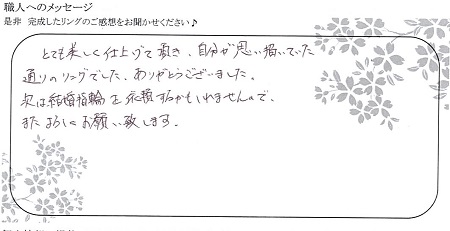 職人へのメッセージ
是非 完成したリングのご感想をお聞かせください♪
とても美しく仕上げて頂き、自分が思い描いていた
通りのリングでした。ありがとうございました。
次は結婚指輪を依頼するかもしれませんので、
またよろしくお願い致します。